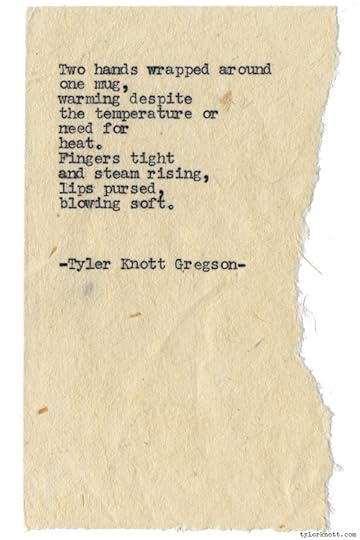 Two hands wrapped around
one mug,
warming despite
the temperature or
need for
heat.
Fingers tight
and steam rising,
lips pursed,
blowing soft.
-Tyler Knott Gregson-
tylerknott.com